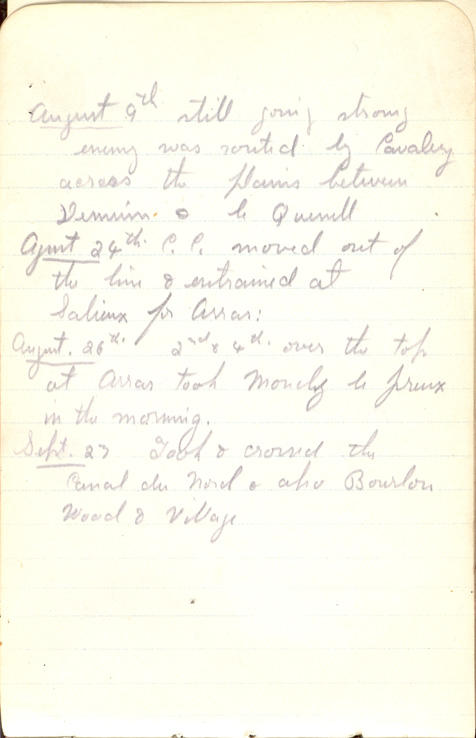 August 9th still going strong
enemy was routed by Cavalry
across the plains between
Demuin. & le Quenell
Agust 24th. C. C. moved out of
the line & entrained at
Salieux for Arras:
August. 26th. 2nd & 4th. over the top
at Arras took Monchy le preux
in the morning.
Sept. 27 Took & crossed the
Canal du Nord & also Bourlon
Wood & Village